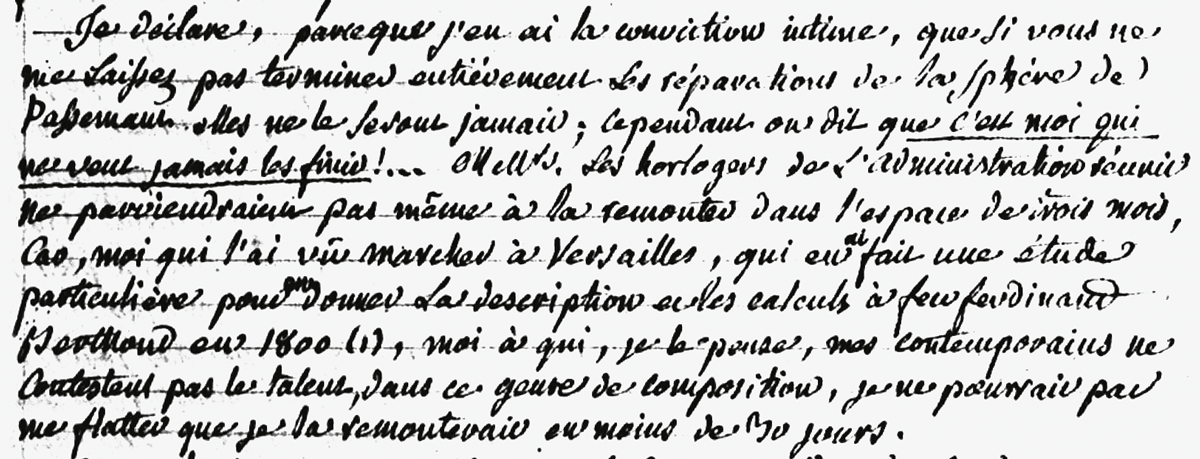 — Je déclare, parceque j'en ai la conviction intime, que si vous ne
me laissez pas terminer entièrement les réparations de la sphère de
Passemant elles ne le seront jamais; cependant on dit que c'est moi qui
ne veut jamais les finir!... MMrs. les horlogers de l'administration réunis
ne parviendraient pas même à la remonter dans l'espace de trois mois,
Car, moi qui l'ai vû marcher à Versailles, qui en ai fait une étude
particulière pour en donner la description et les calculs à feu ferdinand
Berthoud en 1800 (1), moi à qui, je le pense, mes contemporains ne
Contestent pas le talent, dans ce genre de composition, je ne pourrais pas
me flatter que je la remonterais en moins de 30 jours.